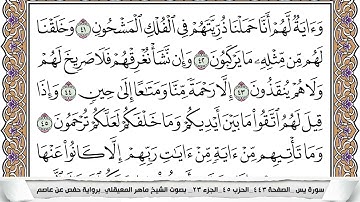 وَءَايَةٌ لَّهُمْ أَنَّا حَمَلْنَا ذُرِّيَّتَهُمْ فِي الْفُلْكِ الْمَشْحُونِ ٤١ وَخَلَقْنَا
لَهُم مِّن مِّثْلِهِ مَا يَرْكَبُونَ ٤٢ وَإِن نَّشَأْ نُغْرِقْهُمْ فَلَا صَرِيخَ لَهُمْ
وَلَا هُمْ يُنقَذُونَ ٤٣ إِلَّا رَحْمَةً مِّنَّا وَمَتَاعًا إِلَىٰ حِينٍ ٤٤ وَإِذَا
قِيلَ لَهُمُ اتَّقُوا مَا بَيْنَ أَيْدِيكُمْ وَمَا خَلْفَكُمْ لَعَلَّكُمْ تُرْحَمُونَ ٤٥
وَمَا تَأْتِيهِم مِّنْ ءَايَةٍ مِّنْ ءَايَاتِ رَبِّهِمْ إِلَّا كَانُوا عَنْهَا
سورة يس - الصفحة ٤٤٣ - الحزب ٤٥ - الجزء ٢٣ - بصوت الشيخ ماهر المعيقلي - برواية حفص عن عاصم